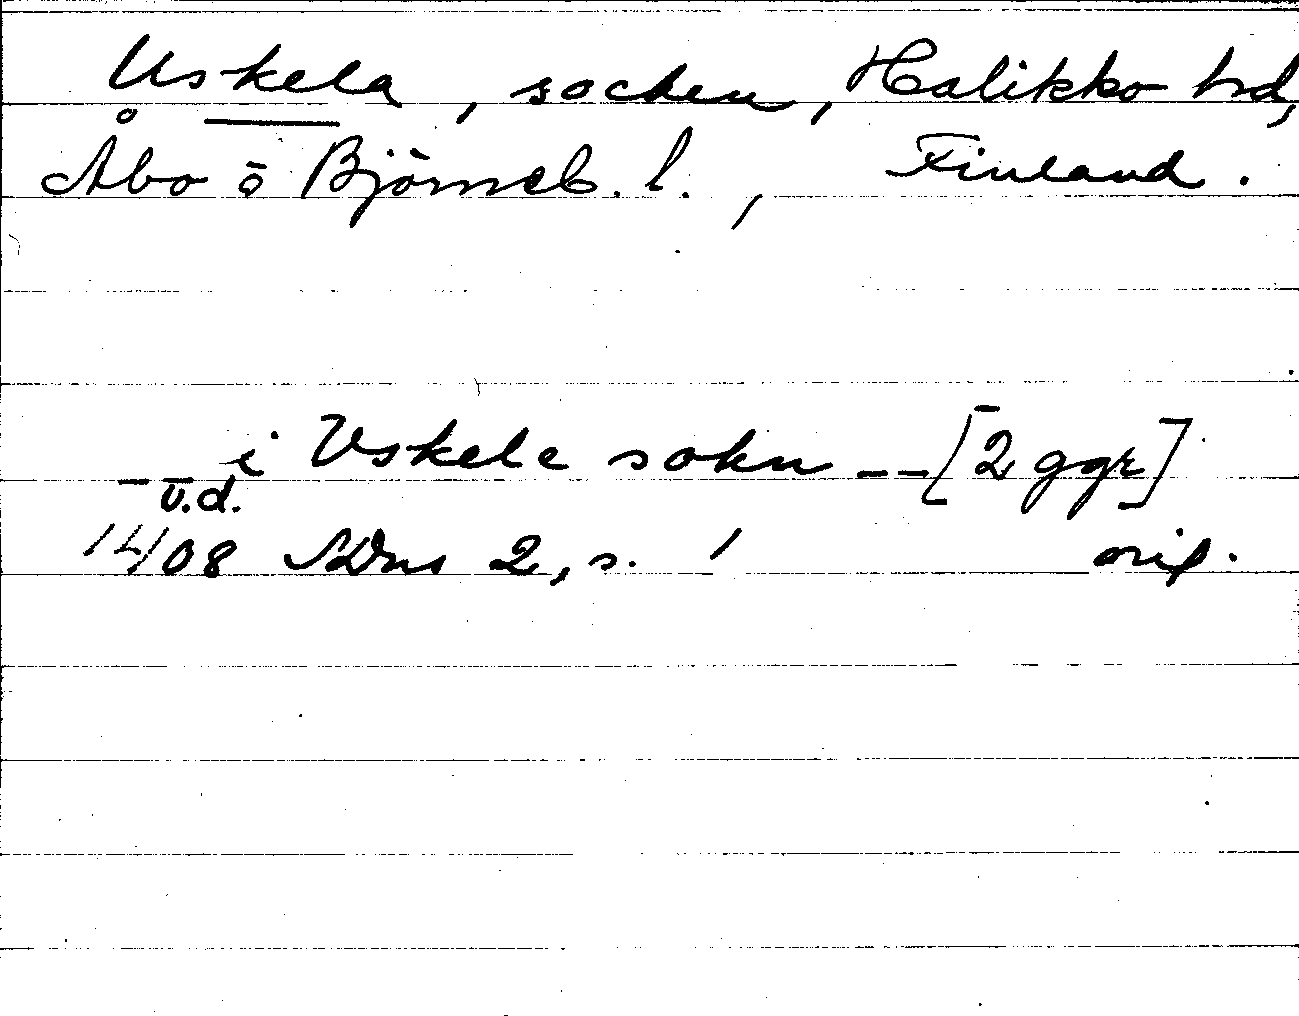 Uskela, socken, Halikko hd,
Åbo o Björneb. l., Finland.
i Vskele sokn -- [2 ggr]
u.d.
14/08 SDns 2, s. 1 orig.